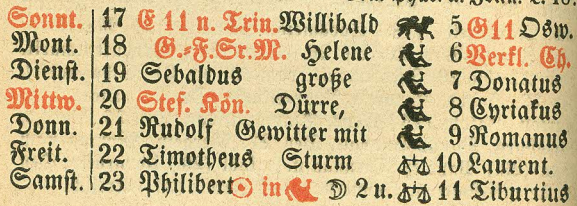 Sonnt. 17 E 11 n. Trin. Willibald 5 G 11 Osw.
Mont. 18 G.-F. Sr. M. Helene 6 Verkl. Ch.
Dienst. 19 Sebaldus große 7 Donatus
Mittw. 20 Stef. Kön. Dürre, 8 Cyriakus
Donn. 21 Rudolf Gewitter mit 9 Romanus
Freit. 22 Timotheus Sturm 10 Laurent.
Samst. 23 Philibert ☉ in 2 u. 11 Tiburtius